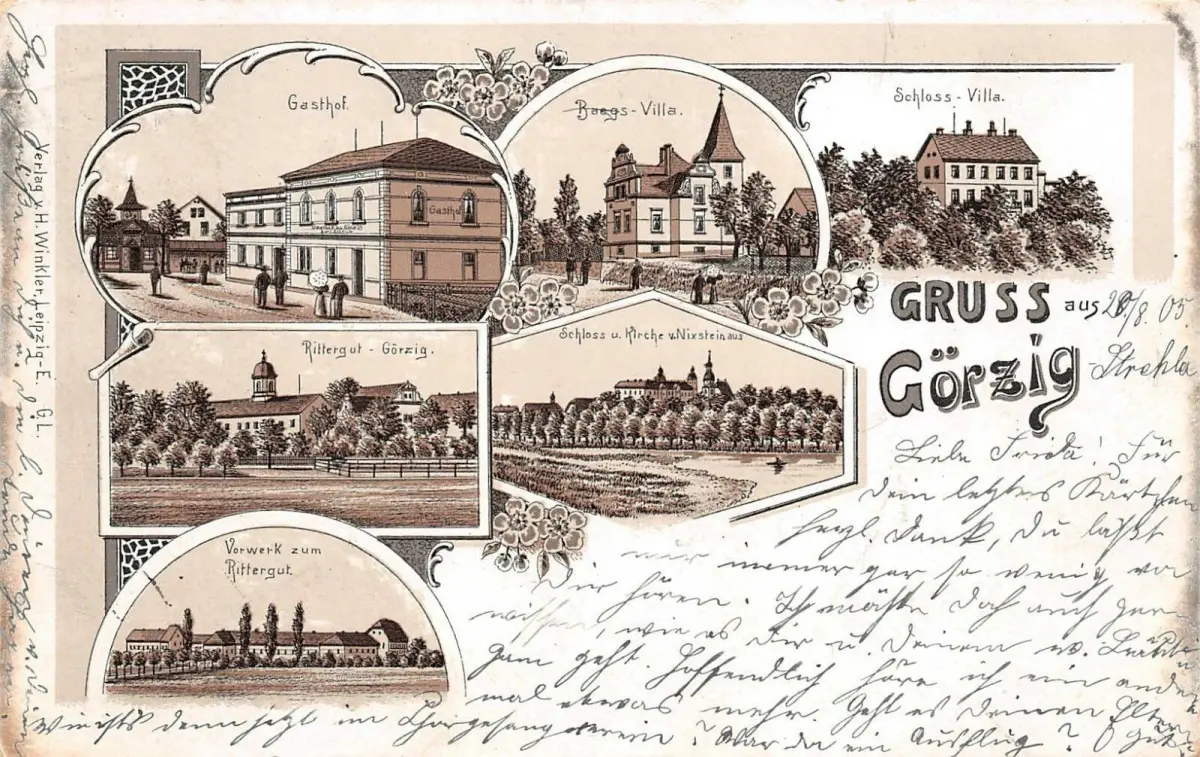 Gasthof.
Gasthof
Baegs - Villa.
Schloss - Villa.
GRUSS aus
Görzig
28/8. 05
Strehla
Rittergut - Görzig.
Schloss u. Kirche v. Nixstein aus
Vorwerk zum
Rittergut.
Verlag v. H. Winkler, Leipzig-E. GL.
Liebe Frieda! Für
Dein letztes Kärtchen
herzl. Dank, Du läßt
nur immer gar so wenig von
Dir hören. Ich möchte doch auch gern
wissen, wie es Dir u. Deinem
geht. Hoffendlich höre ich ein ander
mal etwas mehr. Geht es Deinen Eltern
gut
denn jetzt im Chorgesangverein? War da ein Ausflug?